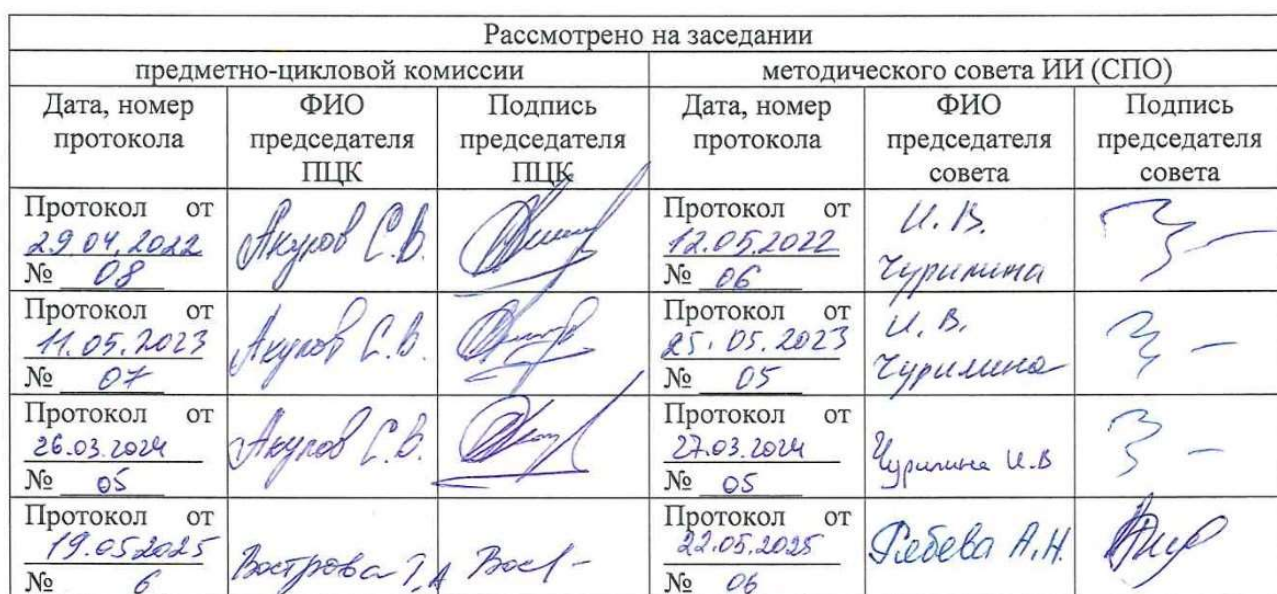 Рассмотрено на заседании
предметно-цикловой комиссии
методического совета ИИ (СПО)
Дата, номер
протокола
ФИО
председателя
ПЦК
Подпись
председателя
ПЦК
Дата, номер
протокола
ФИО
председателя
совета
Подпись
председателя
совета
Протокол от
29.04.2022
№ 08
Акулов С.В.
Протокол от
12.05.2022
№ 06
И.В.
Чурилина
Протокол от
11.05.2023
№ 07
Акулов С.В.
Протокол от
25.05.2023
№ 05
И.В.
Чурилина
Протокол от
26.03.2024
№ 05
Акулов С.В.
Протокол от
27.03.2024
№ 05
Чурилина И.В
Протокол от
19.05.2025
№ 6
Вострова
Протокол от
22.05.2025
№ 06
А.Н.